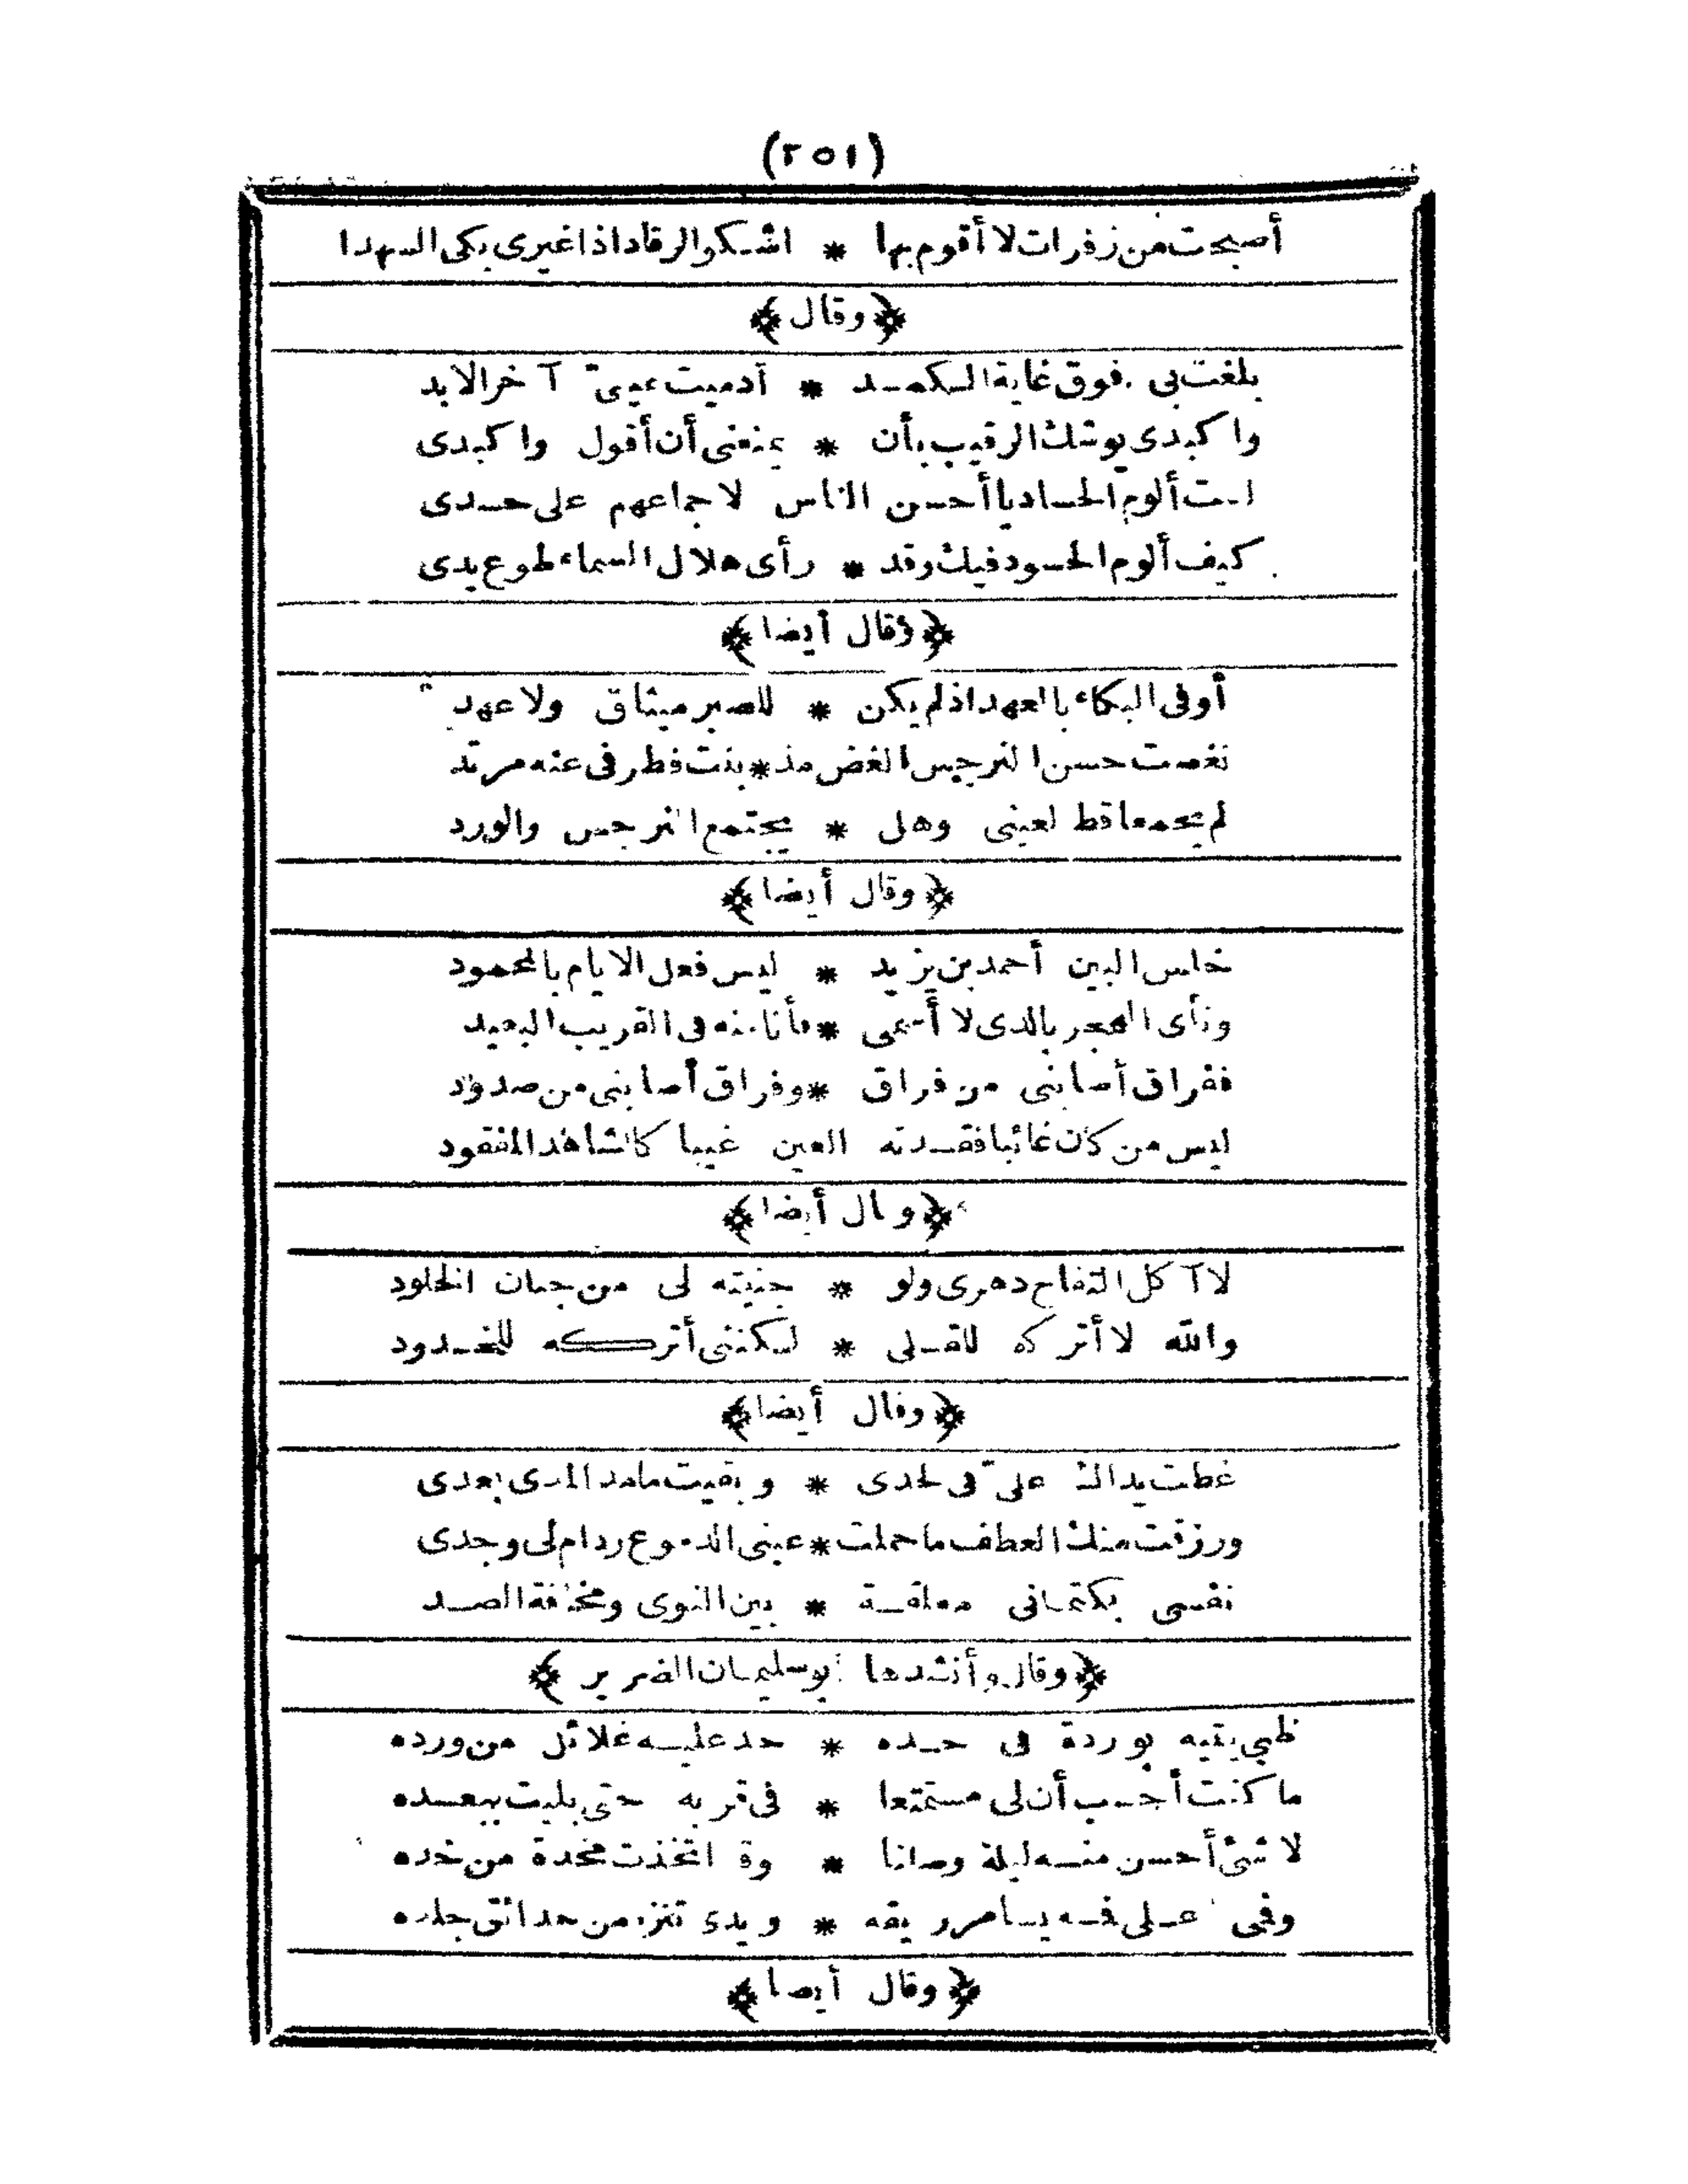 (٢٥١)
أصبحت من زفرات لا أقوم بها * اشكو الرقاد اذا غيرى بكى السهدا
﴿وقال﴾
بلغت بى فوق غاية الكمد * أدميت عينى آخر الابد
واكبدى يوشك الرقيب بأن * يمنعنى أن أقول واكبدى
لست ألوم الحساد يا أحسن الناس لاجماعهم على حسدى
كيف ألوم الحسود فيك وقد * رأى هلال السماء طوع يدى
﴿وقال أيضا﴾
أوفى البكاء بالعهد اذ لم يكن * للصبر ميثاق ولا عهد
نغصت حسن النرجس الغض مذ * بنت فطرفى عنه مرتد
لم يجمعا قط لعينى وهل * يجتمع النرجس والورد
﴿وقال أيضا﴾
خلس البين أحمد بن يزيد * ليس فعل الايام بالمحمود
ونأى الهجر بالذى لا أسمى * فأنا منه فى القريب البعيد
ففراق أصابنى من فراق * وفراق أصابنى من صدود
ليس من كان غائبا فقدته العين غيبا كالشاهد المفقود
﴿وقال أيضا﴾
لا آكل التفاح دهرى ولو * جنيته لى من جنان الخلود
والله لا أتركه للقلى * لكننى أتركه للخدود
﴿وقال أيضا﴾
غطت يداك على فى لحدى * وبقيت مامد المدى بعدى
ورزقت منك العطف ماحملت * عينى الدموع ودام لى وجدى
نفسى بكتمانى معلقة * بين النوى ومخافة الصد
﴿وقال وأنشدها أبو سليمان الضرير﴾
ظبي يتيه بوردة فى خده * خد عليه غلائل من ورده
ما كنت أحسب أن لى مستمتعا * فى قربه حتى بليت ببعده
لا شئ أحسن منه ليلة وصلنا * وقد اتخذت مخدة من خده
وفمى على فمه يسامر ريقه * ويدى تنزه من حدائق جلده
﴿وقال أيضا﴾